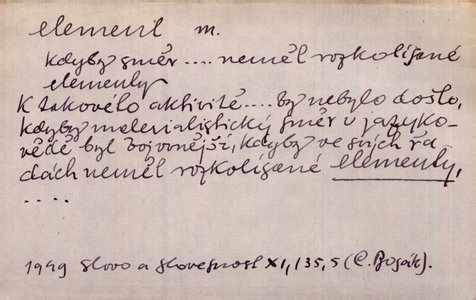 element m.
kdyby směr .... neměl rozkolísané
elementy
K takovéto aktivitě .... by nebylo došlo,
kdyby materialistický směr v jazyko-
vědě byl bojovnější, kdyby ve svých řa-
dách neměl rozkolísané elementy,
....
1949 Slovo a slovesnost XI, 135, 5 (C. Bosák).